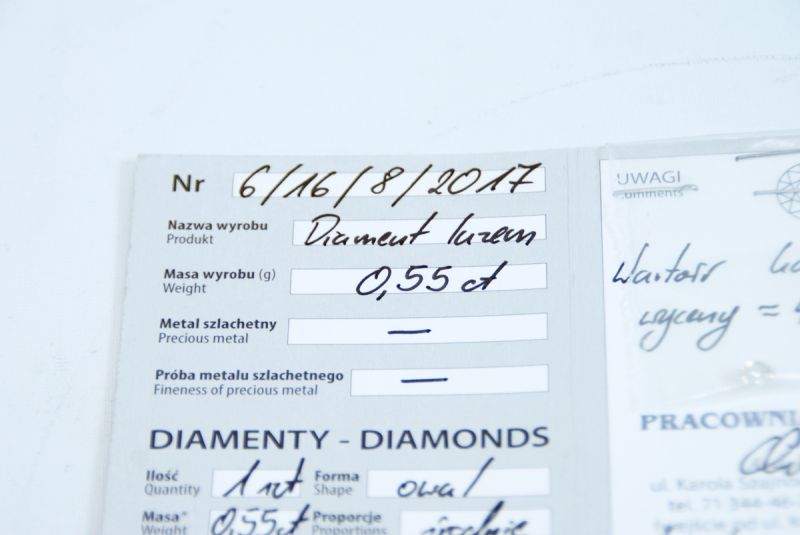 Nr 6/16/8/2017
Nazwa wyrobu Diament luzem
Produkt
Masa wyrobu (g) 0,55 ct
Weight
Metal szlachetny —
Precious metal
Próba metalu szlachetnego —
Fineness of precious metal
DIAMENTY - DIAMONDS
Ilość 1 szt Forma owal
Quantity Shape
Masa* 0,55ct Proporcje średnie
Weight Proportions
UWAGI
omments
Wartość
wyceny =
PRACOWNI
ul. Karola Szajno
tel. 71 344-46-